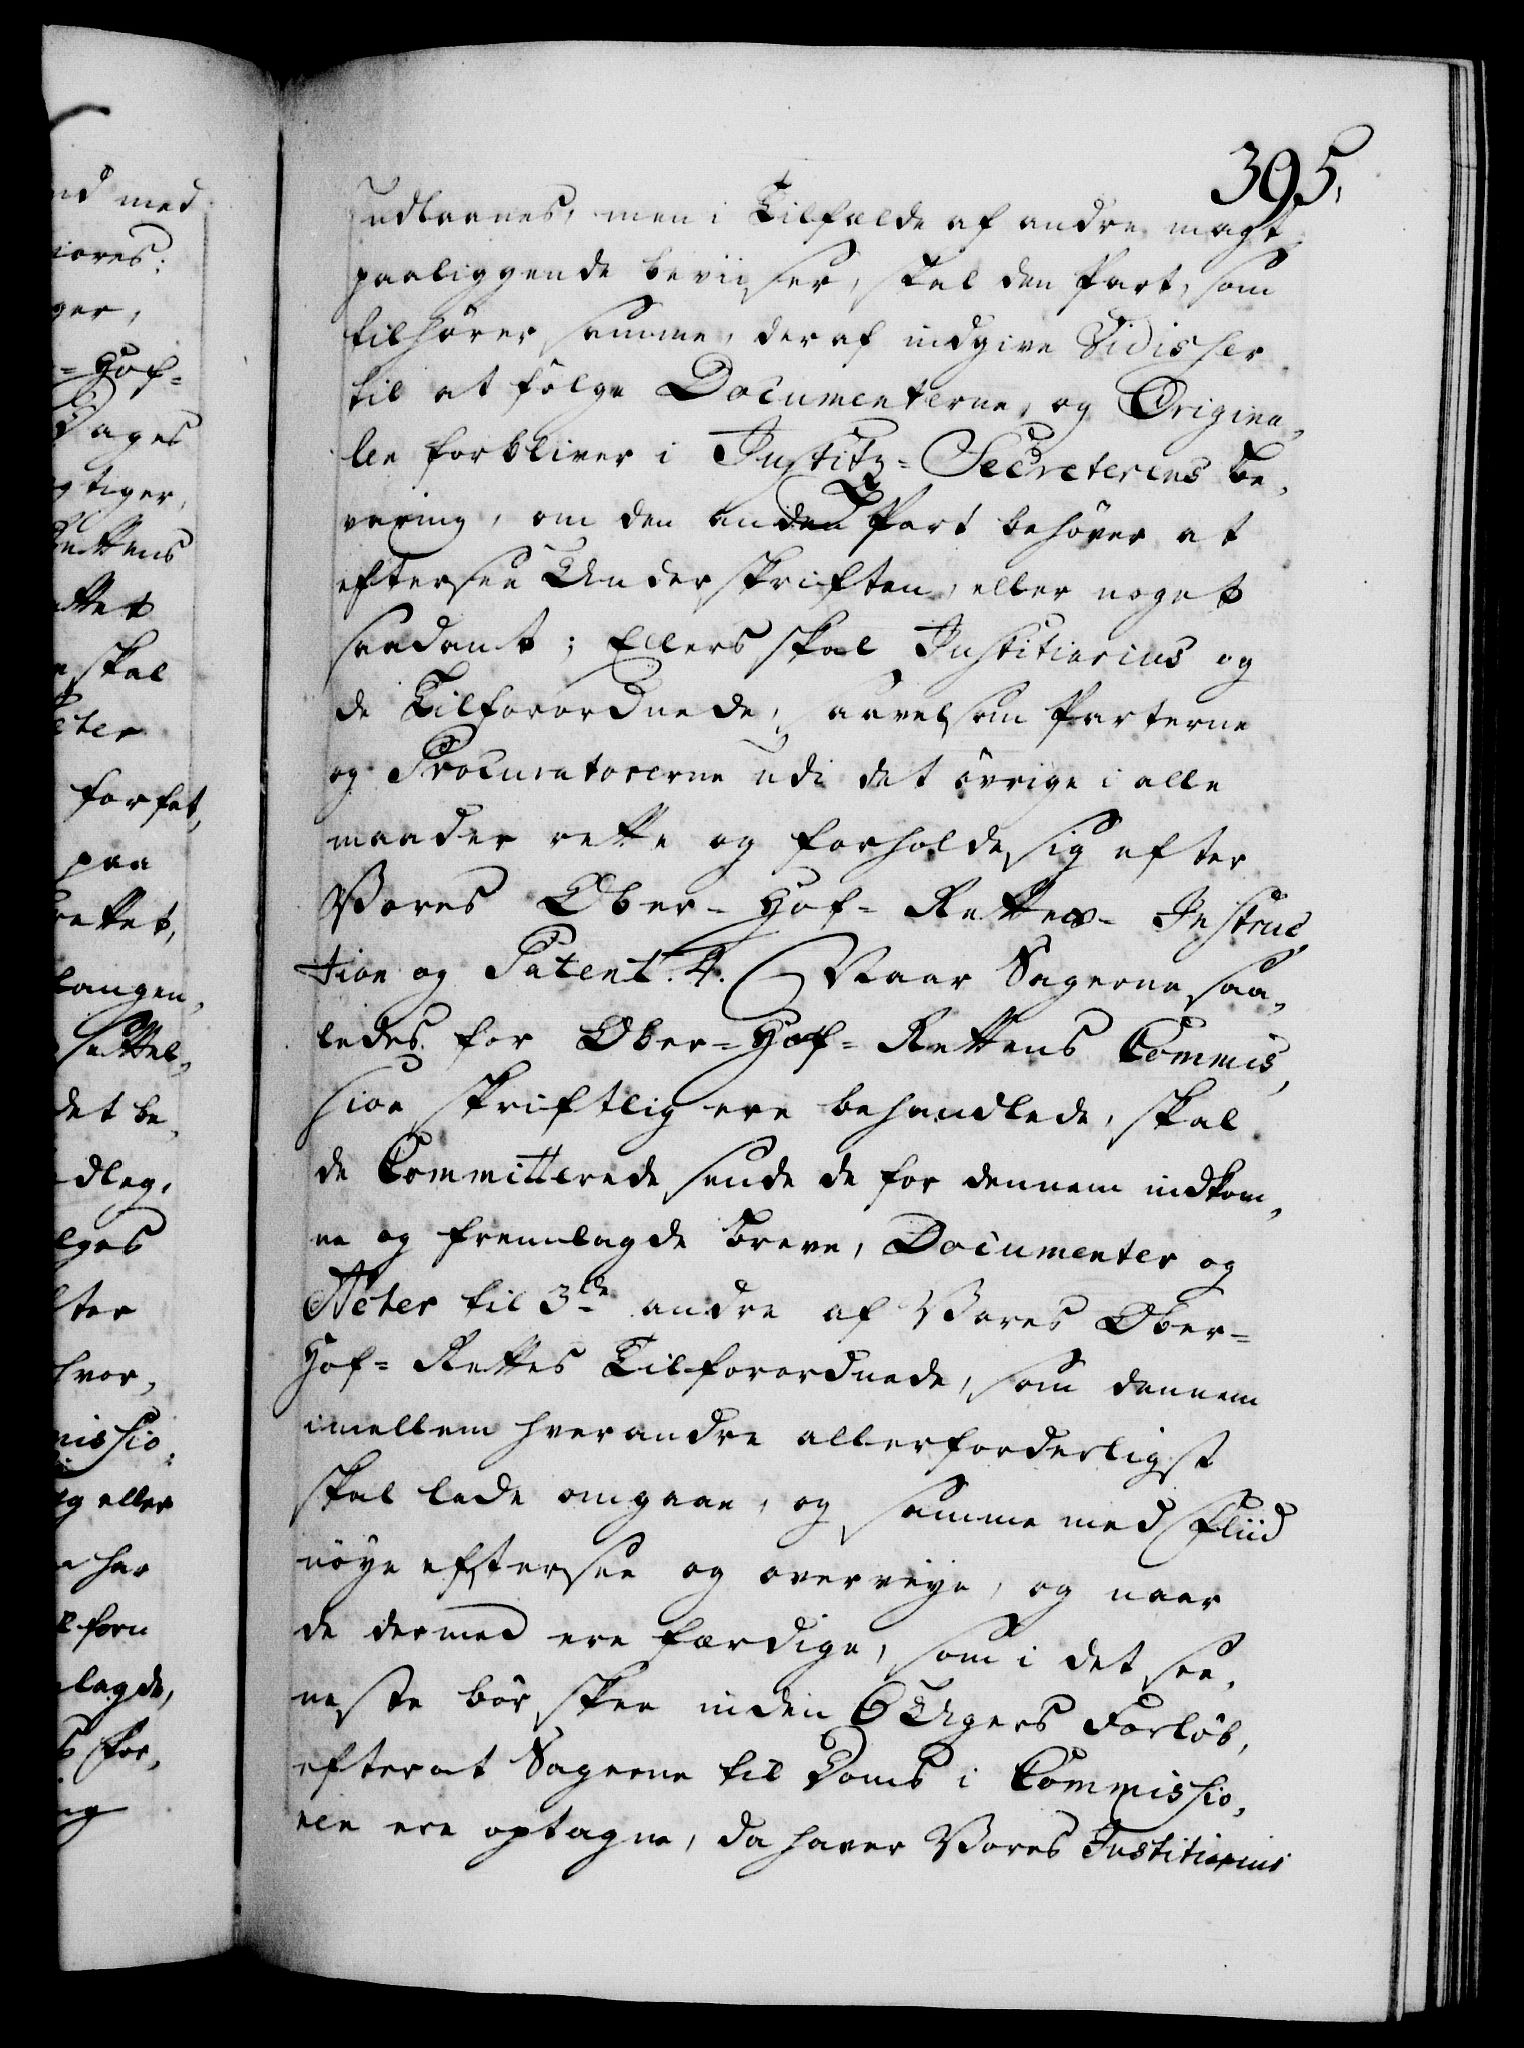 395.
udlaanes, men i Tilfælde af andre magt
paaliggende beviiser, skal den Part, som
tilhører samme, deraf indgive Vidisser
til at følge Documenterne, og Origina,
len forbliver i Justitz=Secreterens Be,
varing, om den anden Part behøver at
eftersee Underskriften, eller noget
saadant; Ellers skal Justitiarius og
de Tilforordnede, saavelsom Parterne
og Procuratorerne udi det øvrige i alle
maader rette og forholde sig efter
Vores Ober-Hof-Rettes-Instruc,
tion og Patent. 4. Naar Sagerne saa,
ledes for Ober=Hof=Rettens Commis,
sion skriftlig ere behandlede, skal
de Committerede sende de for dennem indkom,
ne og fremlagde Breve, Documenter og
Acter til 3de andre af Vores Ober=
Hof=Rettes Tilforordnede, som dennem
imellem hverandre allerforderligst
skal lade omgaae, og samme med Fliid
nøye eftersee og overveye, og naar
de dermed ere færdige, som i det see,
neste bør skee inden 6 Ugers Forløb,
efterat Sagerne til Doms i Commissio,
nen ere optagne, da haver Vores Justitiarius
nd med
iores:
ger,
=Hof=
Dages
gtiger,
Rettens
ettet
skal
cter
forfat,
paa
rettet,
langen,
settel,
det be,
dlag,
lges
lter
hvor,
missio,
g eller
har
forn
lagde,
for,
ng